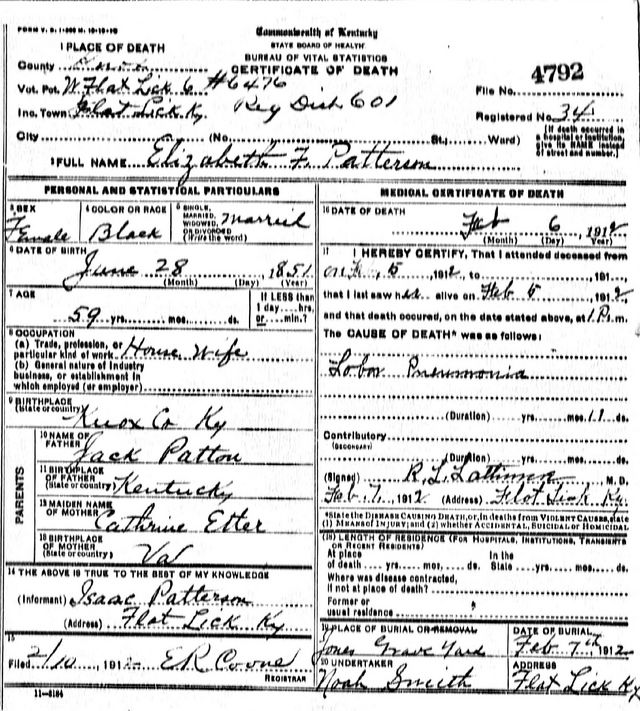 FORM V. S. 1-
Commonwealth of Kentucky
STATE BOARD OF HEALTH
BUREAU OF VITAL STATISTICS
CERTIFICATE OF DEATH
1 PLACE OF DEATH
County Knox
Vot. Pct. W Flat Lick 6 #6476
Inc. Town Flat Lick Ky. Reg Dist 601
4792
File No.
Registered No. 34
City (No. St.; Ward)
(If death occurred in a hospital or institution, give its NAME instead of street and number.)
2 FULL NAME Elizabeth F. Patterson
PERSONAL AND STATISTICAL PARTICULARS
3 SEX
Female
4 COLOR OR RACE
Black
5 SINGLE, MARRIED, WIDOWED, OR DIVORCED (Write the word)
Married
6 DATE OF BIRTH
June 28, 1851
(Month) (Day) (Year)
7 AGE
59 yrs. mos. ds.
If LESS than 1 day, hrs. or min.?
8 OCCUPATION
(a) Trade, profession, or particular kind of work House Wife
(b) General nature of industry business, or establishment in which employed (or employer)
9 BIRTHPLACE (State or country)
Knox Co Ky
PARENTS
10 NAME OF FATHER
Jack Patton
11 BIRTHPLACE OF FATHER (State or country) Kentucky
12 MAIDEN NAME OF MOTHER
Cathrine Etter
13 BIRTHPLACE OF MOTHER (State or country)
Va
14 THE ABOVE IS TRUE TO THE BEST OF MY KNOWLEDGE
(Informant) Isaac Patterson
(Address) Flat Lick Ky
15
Filed 2/10, 1912 E R
REGISTRAR
11-3184
MEDICAL CERTIFICATE OF DEATH
16 DATE OF DEATH
Feb 6, 1912
(Month) (Day) Year
17 I HEREBY CERTIFY, That I attended deceased from
5, 1912, to 191
that I last saw her alive on Feb 5, 1912,
and that death occured, on the date stated above, at 1 P. m.
The CAUSE OF DEATH* was as follows:
Lobar Pneumonia
(Duration) yrs. mos. 11 ds.
Contributory
(SECONDARY)
(Duration) yrs. mos. ds.
(Signed) R. L. M. D.
Feb. 7, 1912 (Address) Flat Lick Ky.
*State the DISEASE CAUSING DEATH, or, in deaths from VIOLENT CAUSES, state (1) MEANS of INJURY; and (2) whether ACCIDENTAL, SUICIDAL or HOMICIDAL
(18) LENGTH OF RESIDENCE (FOR HOSPITALS, INSTITUTIONS, TRANSIENTS OR RECENT RESIDENTS)
At place of death yrs. mos. ds. In the State yrs. mos. ds.
Where was disease contracted, if not at place of death?
Former or usual residence
19 PLACE OF BURIAL OR REMOVAL
Jones Grave Yard
DATE OF BURIAL
Feb 7th, 1912
20 UNDERTAKER
Noah Smith
ADDRESS
Flat Lick Ky